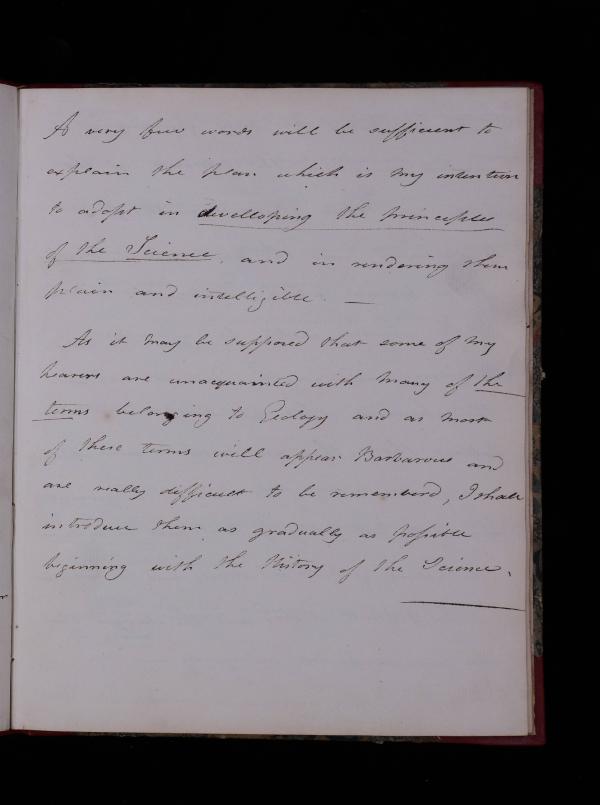 A very few words will be sufficient to
explain the plan which is my intention
to adopt in develloping the principles
of the Science, and in rendering them
plain and intelligible —
As it may be supposed that some of my
hearers are unacquainted with many of the
terms belonging to Geology and as most
of these terms will appear Barbarous and
are really difficult to be rememberd, I shall
introduce them as gradually as possible
beginning with the History of the Science.